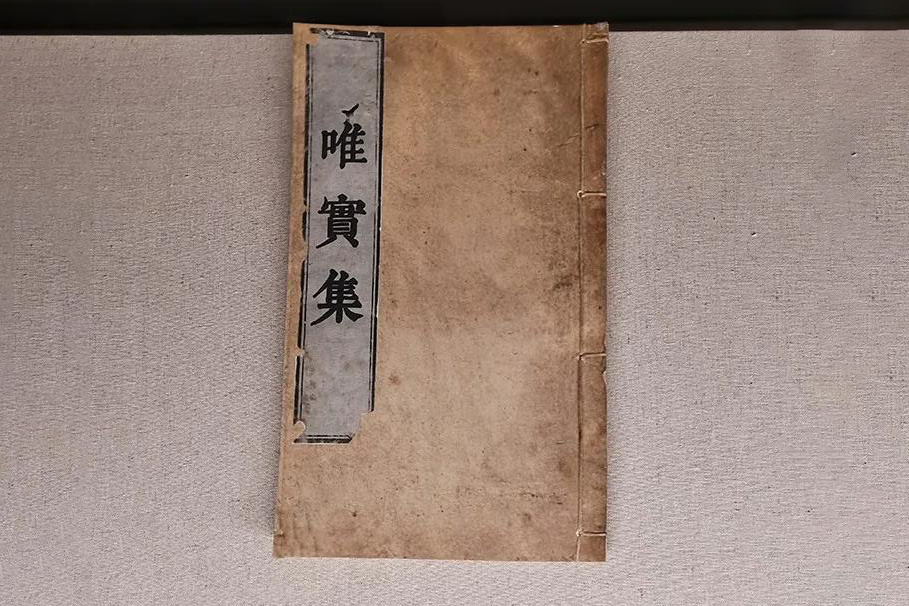 唯實集